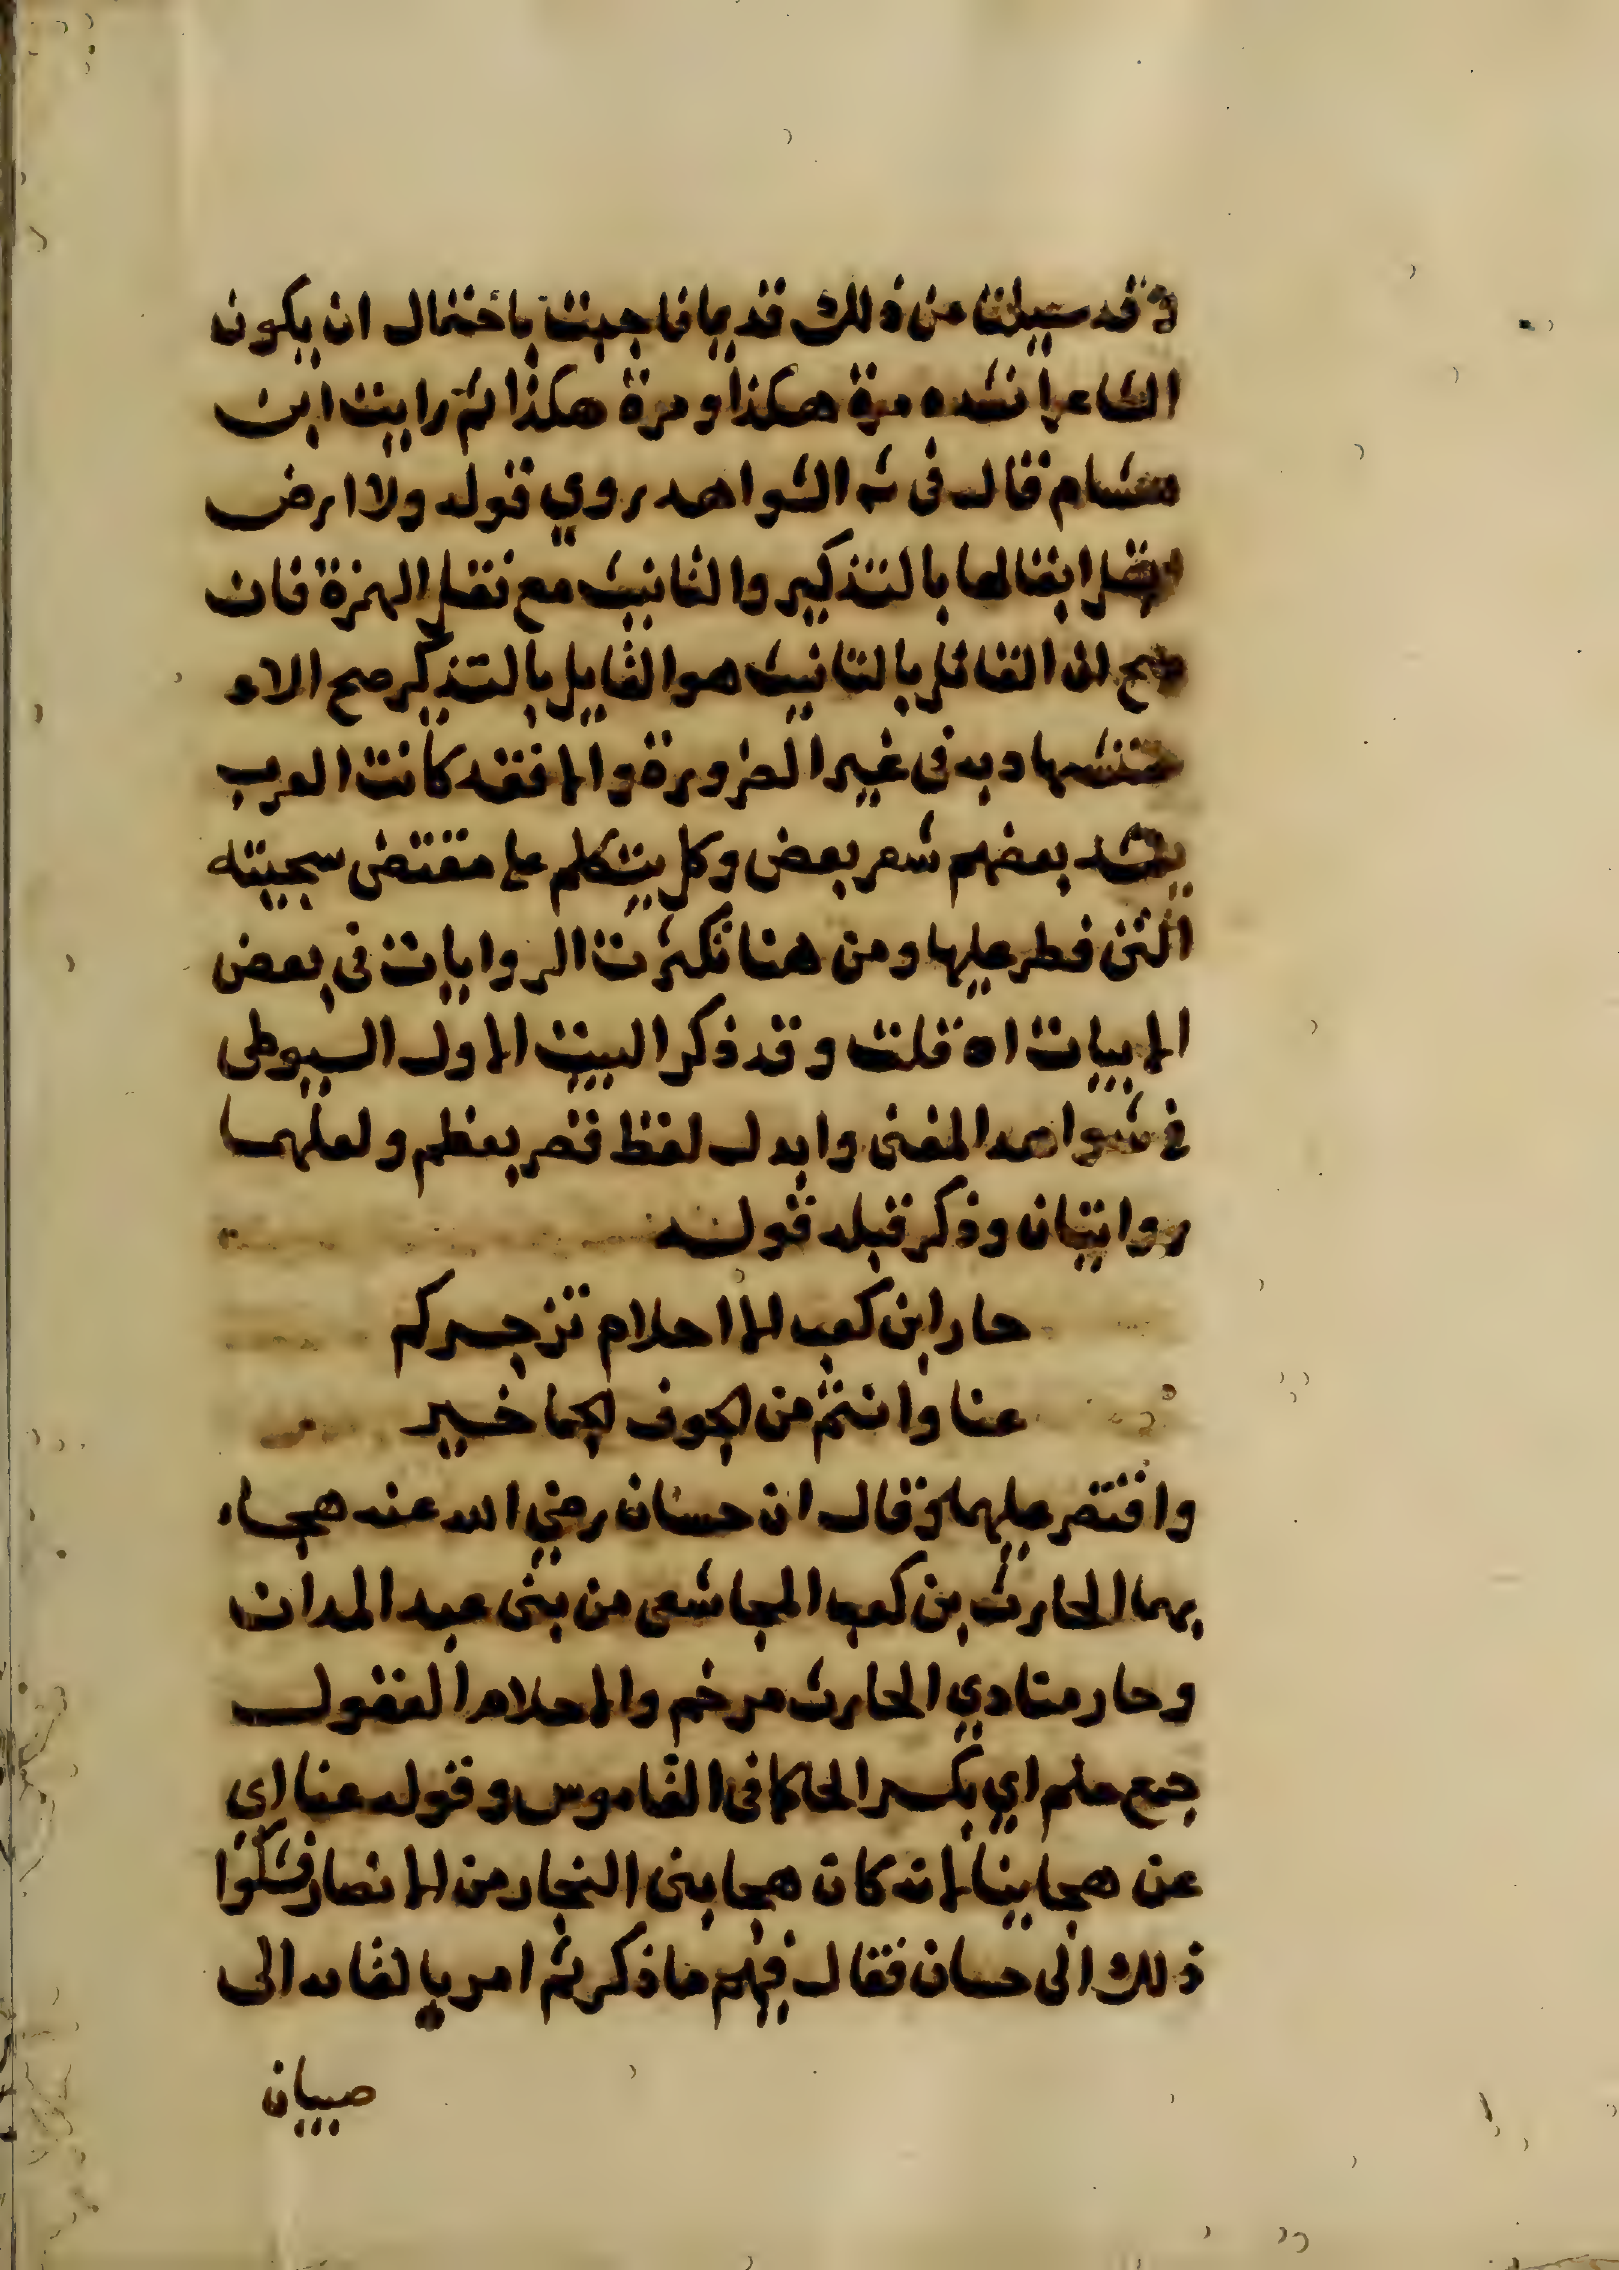 وقد سيلت من ذلك قديما فاجبت باحتمال ان يكون
الشاعر انشده مرة هكذا ومرة هكذا ثم رايت ابن
هشام قال فى شر الشواهد روي قوله ولا ارض
ابقل ابقالها بالتذكير والثانيث مع نقل الهمزة فان
صح ان القائل بالتانيث هو القايل بالتذكير صح الاء
ستشهاد به فى غير الضرورة والا فقد كانت العرب
ينشد بعضهم شعر بعض وكل يتكلم على مقتضى سجيته
التى فطر عليها ومن هنا تكثرت الروايات فى بعض
الابيات اه قلت وقد ذكر البيت الاول السيوطى
فى شواهد المغنى وابدل لفظ قصر بعظم ولعلهما
روايتان وذكر قبله قوله
حار ابن كعب الا احلام تزجركم
عنا وانتم من الجوف الجماخير
واقتصر عليهما وقال ان حسان رضي الله عنه هجاء
بهما الحارث بن كعب المجاشعى من بنى عبد المدان
وحار منادي الحارث مرخم والاحلام العقول
جمع حلم اي بكسر الحا كما فى القاموس وقوله عنا اي
عن هجاينا لانه كان هجا بنى النجار من الانصار فشكوا
ذلك الى حسان فقال فيهم ما ذكر ثم امر بالقائه الى
صبيان